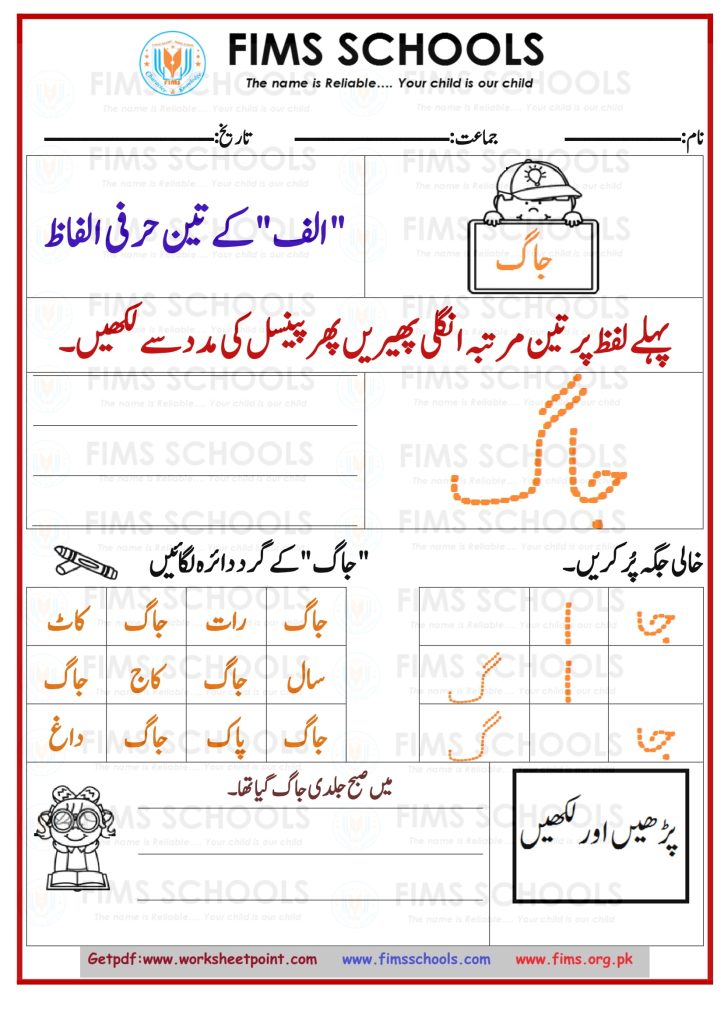 FIMS SCHOOLS
The name is Reliable.... Your child is our child
نام: جماعت: تاریخ:
جاگ
"الف" کے تین حرفی الفاظ
پہلے لفظ پر تین مرتبہ انگلی پھیریں پھر پینسل کی مدد سے لکھیں۔
جاگ
خالی جگہ پُر کریں۔
جا ا
ا گ
جا گ
"جاگ" کے گرد دائرہ لگائیں
جاگ رات جاگ کاٹ
سال جاگ کاج جاگ
جاگ پاک جاگ داغ
میں صبح جلدی جاگ گیا تھا۔
پڑھیں اور لکھیں
Getpdf:www.worksheetpoint.com www.fimsschools.com www.fims.org.pk